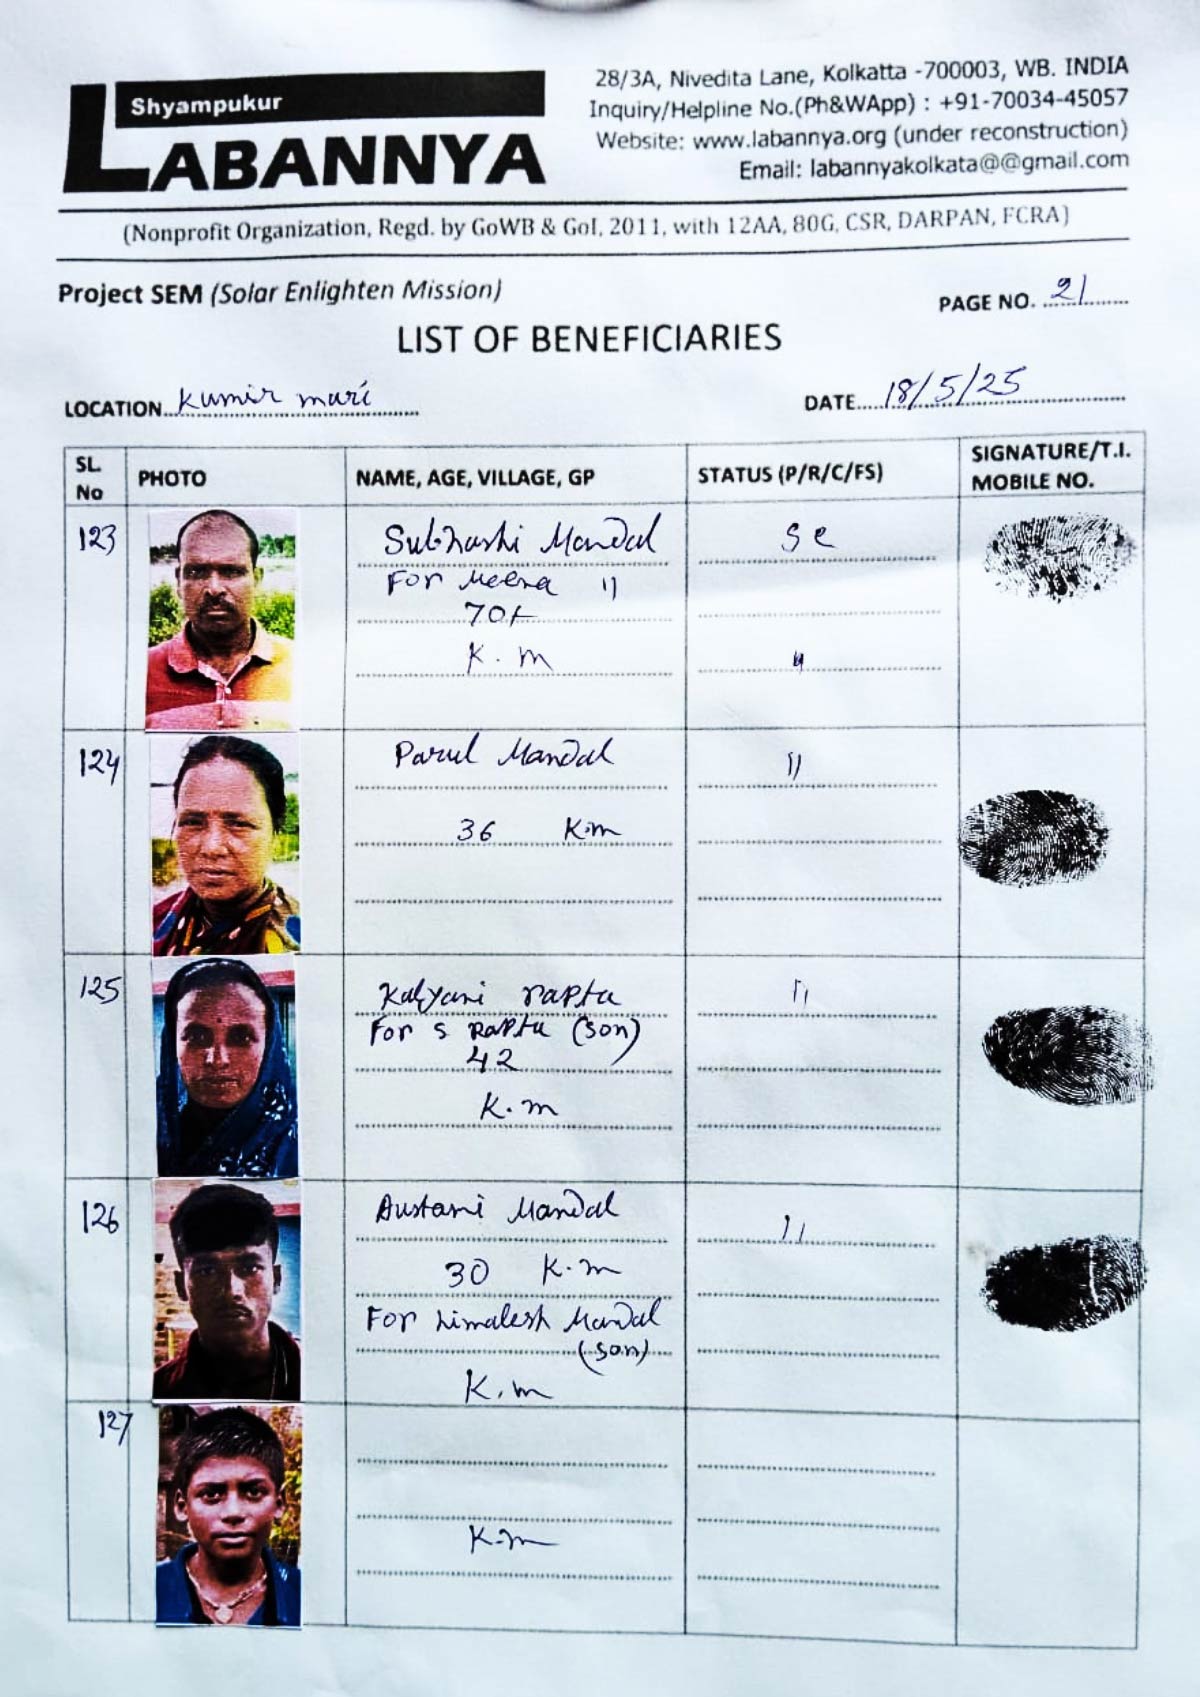 Shyampukur
LABANNYA
28/3A, Nivedita Lane, Kolkatta -700003, WB. INDIA
Inquiry/Helpline No.(Ph&WApp) : +91-70034-45057
Website: www.labannya.org (under reconstruction)
Email: labannyakolkata@@gmail.com
(Nonprofit Organization, Regd. by GoWB & GoI, 2011, with 12AA, 80G, CSR, DARPAN, FCRA)
Project SEM (Solar Enlighten Mission)
PAGE NO. 21
LIST OF BENEFICIARIES
LOCATION Kumir mari
DATE 18/5/25
SL. No PHOTO NAME, AGE, VILLAGE, GP STATUS (P/R/C/FS) SIGNATURE/T.I. MOBILE NO.
123 Subhashi Mandal
For Meena 11
70+
K.m
124 Parul Mandal 11
36 K.m
125 Kalyani rapta 11
For S Rapta (Son)
42
K.m
126 Austami Mandal 11
30 K.m
For himalesh Mandal
(son)
K.m
127
K.m